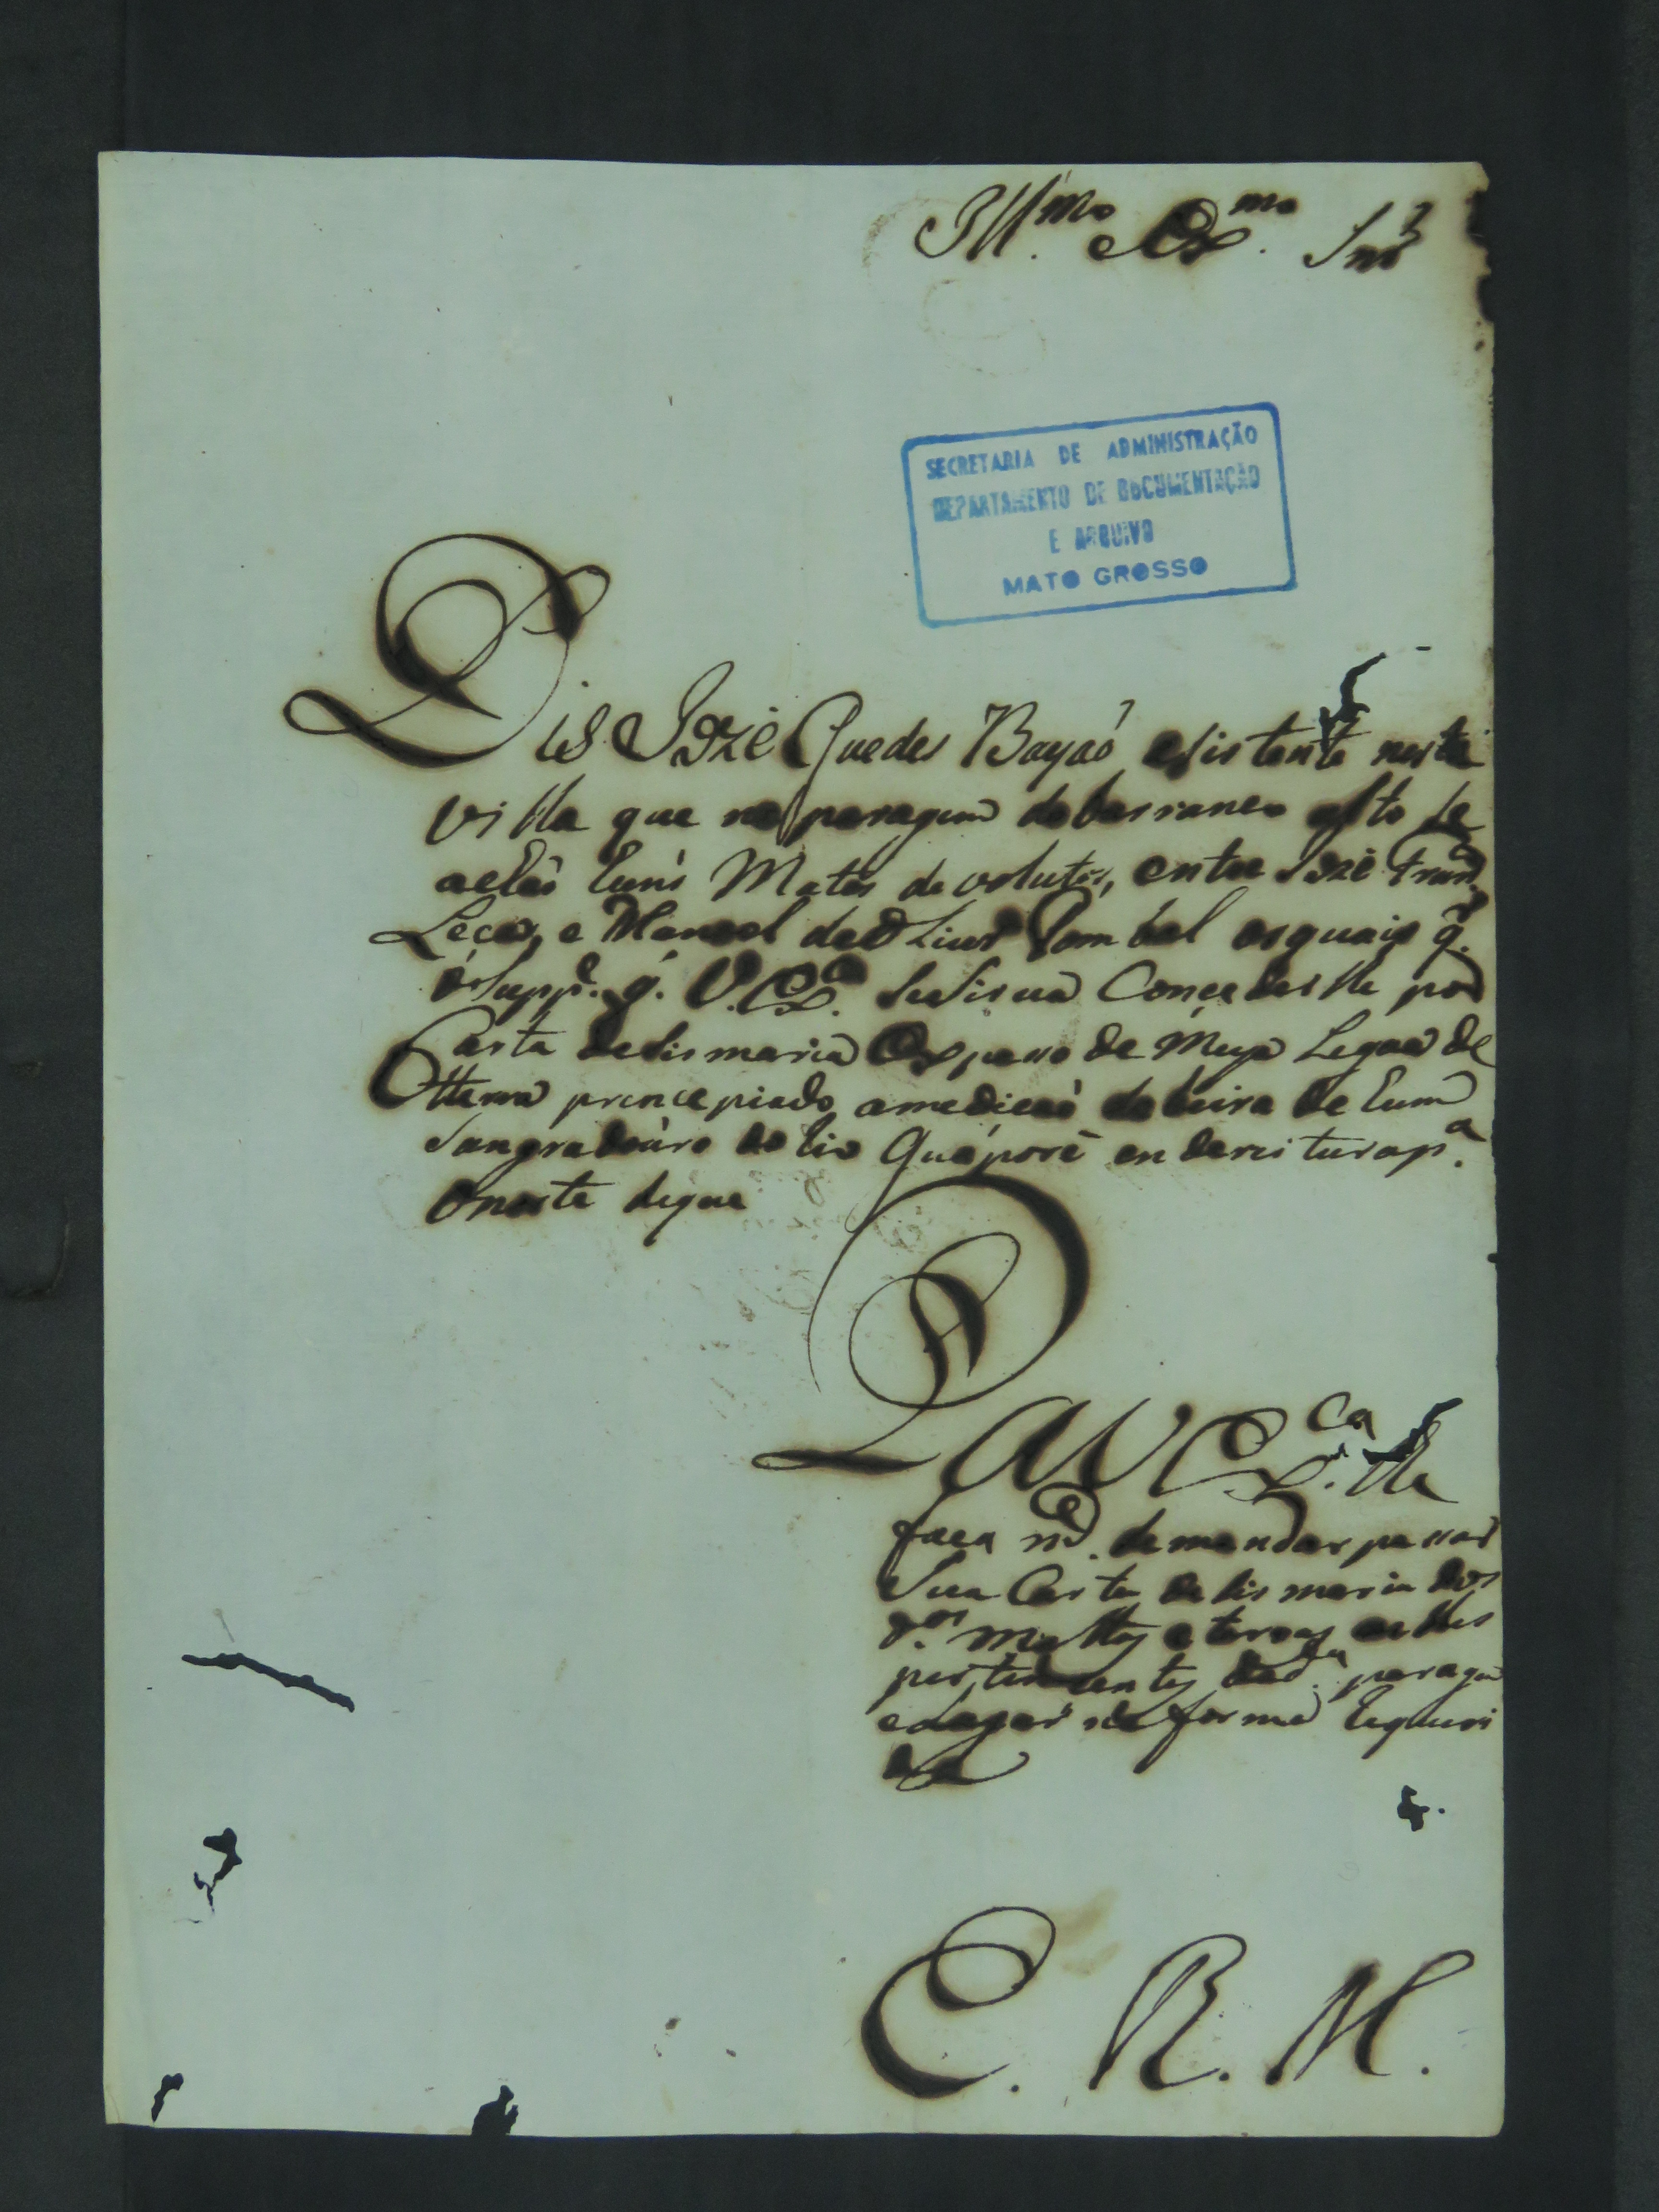 Ill.mo Ex.mo Snr
SECRETARIA DE ADMINISTRAÇÃO
DEPARTAMENTO DE DOCUMENTAÇÃO
E ARQUIVO
MATO GROSSO
Dis Joze Guedes Bayaó asistente nesta
villa que na paragem do barranco alto se
achaõ huns Matos devolutos, entre Joze
e Manoel de Pombal os quais q.
o Supp.e q. V. Ex.a lesirva Concederlhe por
Carta desismaria Espasso de Meya Legua de
terra prencepiado amedicaó dabeira de hum
Sangradouro do Rio Guáporé endereitura p.a
onorte deque
P a V Ex.ca lhe
faca m.e de mandar passar
Sua Carta de sis maria dos
d.os Mattos e terras aelles
pertencentes dad.a paragem
elugar na forma Requeri
da
E. R. M.